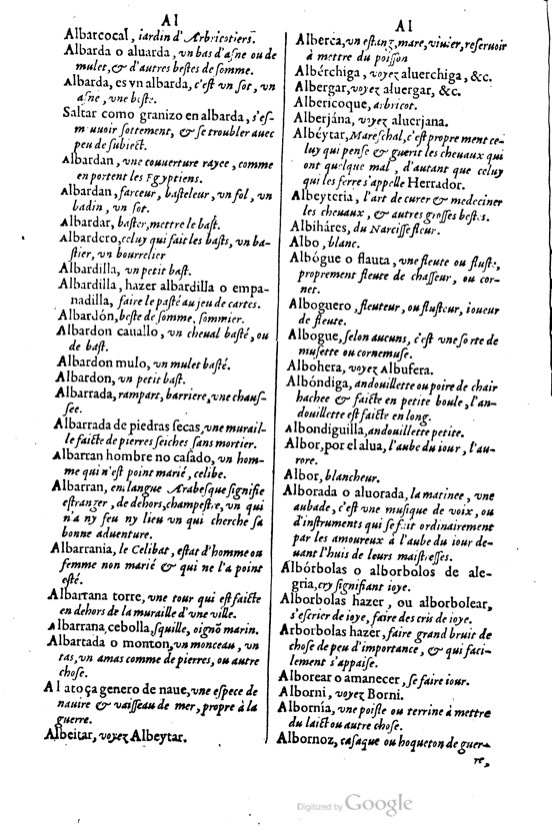 Al
Albarcocal, iardin d'Arbricotiers.
Albarda o aluarda, vn bas d'asne ou de
mulet, & d'autres bestes de somme.
Albarda, es vn albarda, c'est vn sot, vn
asne, vne beste.
Saltar como granizo en albarda, s'es-
m uuoir sottement, & se troubler auec
peu de subiect.
Albardan, vne couuerture rayee, comme
en portent les Egyptiens.
Albardan, farceur, basteleur, vn fol, vn
badin, vn sot.
Albardar, baster, mettre le bast.
Albardero, celuy qui fait les basts, vn ba-
stier, vn bourrelier
Albardilla, vn petit bast.
Albardilla, hazer albardilla o empa-
nadilla, faire le pasté au jeu de cartes.
Albardón, beste de somme, sommier.
Albardon cauallo, vn cheual basté, ou
de bast.
Albardon mulo, vn mulet basté.
Albardon, vn petit bast.
Albarrada, rampart, barriere, vne chaus-
see.
Albarrada de piedras secas, vne murail-
le faicte de pierres seiches sans mortier.
Albarran hombre no casado, vn hom-
me qui n'est point marié, celibe.
Albarran, en langue Arabesque signifie
estranger, de dehors, champestre, vn qui
n'a ny feu ny lieu vn qui cherche sa
bonne aduenture.
Albarrania, le Celibat, estat d'homme ou
femme non marié & qui ne l'a point
esté.
Albarrana torre, vne tour qui est faicte
en dehors de la muraille d'vne ville.
Albarrana cebolla, squille, oignõ marin.
Albartada o monton, vn monceau, vn
tas, vn amas comme de pierres, ou autre
chose.
Al atoça genero de naue, vne espece de
nauire & vaisseau de mer, propre à la
guerre.
Albeitar, voyez Albeytar.
Al
Alberca, vn estang, mare, viuier, reseruoir
à mettre du poisson
Albérchiga, voyez aluerchiga, &c.
Albergar, voyez aluergar, &c.
Albericoque, abricot.
Alberjána, voyez alucrjana.
Albéytar, Mareschal, c'est propre ment ce-
luy qui pense & guerit les cheuaux qui
ont quelque mal, d'autant que celuy
qui les ferre s'appelle Herrador.
Albeyteria, l'art de curer & medeciner
les cheuaux, & autres grosses bestes.
Albiháres, du Narcisse fleur.
Albo, blanc.
Albógue o flauta, vne fleute ou fluste,
proprement fleute de chasseur, ou cor-
net.
Alboguero, fleuteur, ou flusteur, ioueur
de fleute.
Albogue, selon aucuns, c'est vne sorte de
musette ou cornemuse.
Albohera, voyez Albufera.
Albóndiga, andouillette ou poire de chair
hachee & faicte en petite boule, l'an-
douillette est faicte en long.
Albondiguilla, andouillette petite.
Albor, por el alua, l'aube du iour, l'au-
rore.
Albor, blancheur.
Alborada o aluorada, la matinee, vne
aubade, c'est vne musique de voix, ou
d'instruments qui se fait ordinairement
par les amoureux à l'aube du iour de-
uant l'huis de leurs maistresses.
Albórbolas o alborbolos de ale-
gria, cry signifiant ioye.
Alborbolas hazer, ou alborbolear,
s'escrier de ioye, faire des cris de ioye.
Arborbolas hazer, faire grand bruit de
chose de peu d'importance, & qui faci-
lement s'appaise.
Alborear o amanecer, se faire iour.
Alborni, voyez Borni.
Albornía, vne poisle ou terrine à mettre
du laict ou autre chose.
Albornoz, casaque ou hoqueton de guer-
re,
Digitized by Google